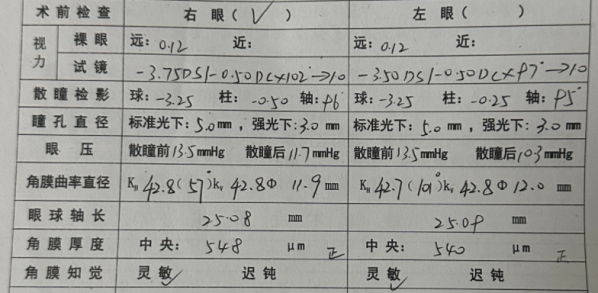 术前检查 右眼(√) 左眼( )
视力 裸眼 远: 0.12 近: 远: 0.12 近:
试镜 -3.75DS/-0.50DC×102°→10 -3.50DS/-0.50DC×97°→10
散瞳检影 球: -3.25 柱: -0.50 轴: 96° 球: -3.25 柱: -0.25 轴: 95°
瞳孔直径 标准光下: 5.0 mm, 强光下: 3.0 mm 标准光下: 5.0 mm, 强光下: 3.0 mm
眼压 散瞳前 13.5 mmHg 散瞳后 11.7 mmHg 散瞳前 13.5 mmHg 散瞳后 10.3 mmHg
角膜曲率直径 KH 42.8(57°) kv 42.8 Φ 11.9 mm KH 42.7(101°) kv 42.8 Φ 12.0 mm
眼球轴长 25.08 mm 25.09 mm
角膜厚度 中央: 548 μm 正 中央: 540 μm 正
角膜知觉 灵敏√ 迟钝 灵敏√ 迟钝